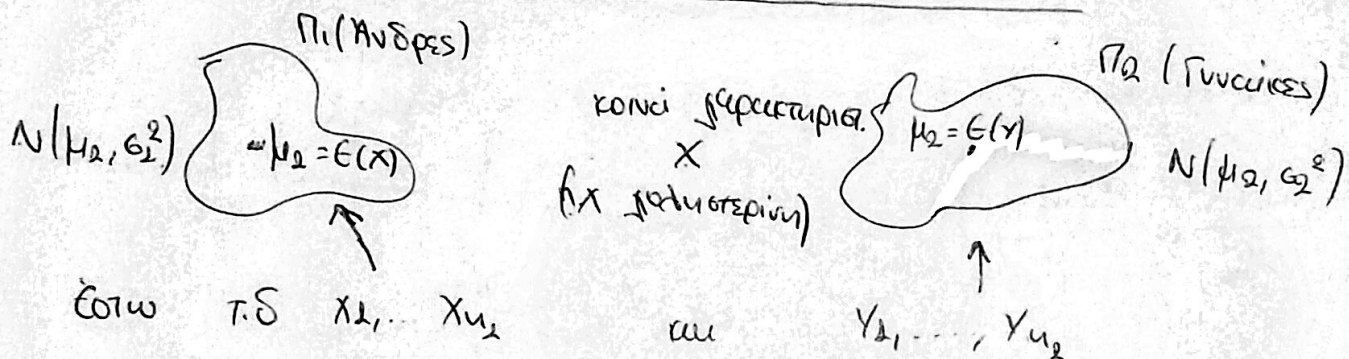 Π₁ (Άνδρες)
N(μ₁, σ₁²)
μ₁ = E(X)
κοινό χαρακτηριστ.
X
(πχ χοληστερίνη)
Π₂ (Γυναίκες)
μ₂ = E(Y)
N(μ₂, σ₂²)
Έστω τ.δ X₁,... Xn₁ και Y₁,...., Yn₂